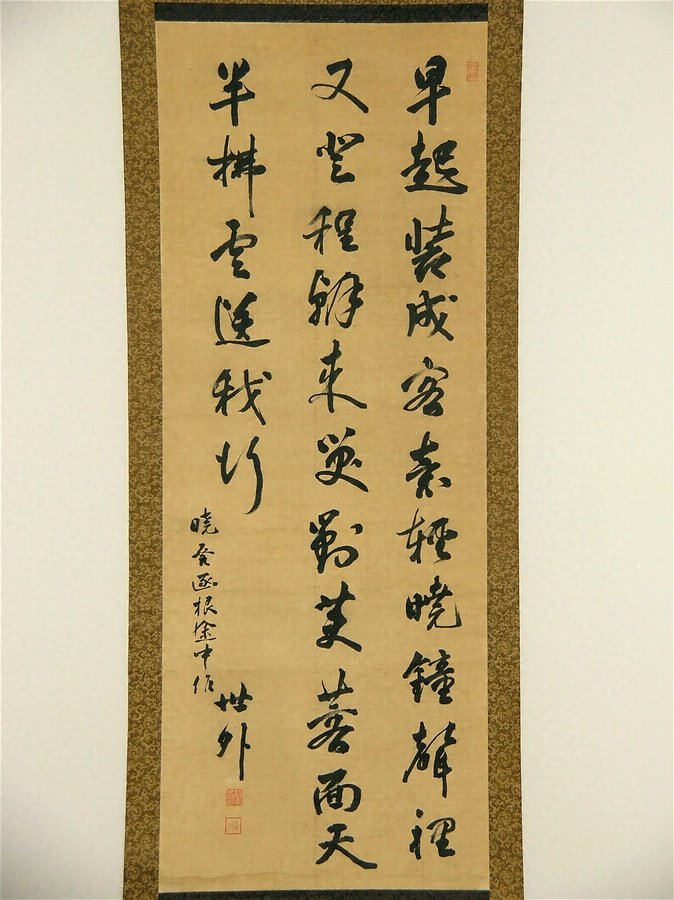 早起装成客嚢輕曉鐘聲裡
又登程来笑對芙蓉面天
半拂雲送我行
曉發函根途中作
世外